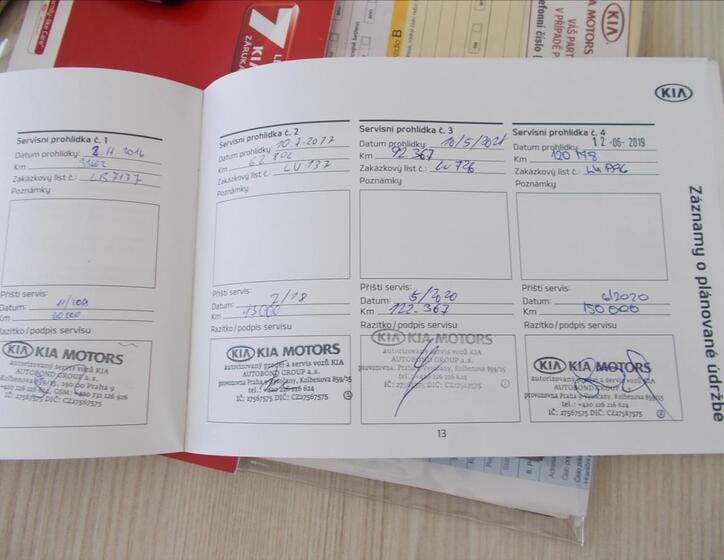 7
KIA
ZÁRUKA
B
KIA
KIA MOTORS
VÁŠ PART
V PŘÍPADĚ P
efonní číslo (
KIA
Záznamy o plánované údržbě
Servisní prohlídka č. 1
Datum prohlídky:
Km
Zakázkový list č.: LB7137
Poznámky
Příští servis:
Datum:
Km
Razítko/podpis servisu
KIA KIA MOTORS
autorizovaný servis vozů KIA
AUTOBOND GROUP a.s.
Kolbenova 859/25, 190 00 Praha 9
IČ: 27567575 DIČ: CZ27567575
Servisní prohlídka č. 2
Datum prohlídky: 10.7.2017
Km
Zakázkový list č.: LU 137
Poznámky
Příští servis:
Datum: 7/18
Km
Razítko/podpis servisu
KIA KIA MOTORS
autorizovaný prodej a servis vozů KIA
AUTOBOND GROUP a.s.
provozovna: Praha 9-Vysočany, Kolbenova 859/25
tel.: +420 226 216 624
IČ: 27567575 DIČ: CZ27567575
Servisní prohlídka č. 3
Datum prohlídky:
Km 92.367
Zakázkový list č.: LU 726
Poznámky
Příští servis:
Datum: 5/2020
Km 122.367
Razítko/podpis servisu
KIA KIA MOTORS
autorizovaný prodej a servis vozů KIA
AUTOBOND GROUP a.s.
provozovna: Praha 9-Vysočany, Kolbenova 859/25
tel.: +420 226 216 624
IČ: 27567575 DIČ: CZ27567575
Servisní prohlídka č. 4
Datum prohlídky: 12-06-2019
Km
Zakázkový list č.:
Poznámky
Příští servis:
Datum: 6/2020
Km 150 000
Razítko/podpis servisu
KIA KIA MOTORS
autorizovaný prodej a servis vozů KIA
AUTOBOND GROUP a.s.
provozovna: Praha 9-Vysočany, Kolbenova 859/25
tel.: +420 226 216 624
IČ: 27567575 DIČ: CZ27567575
13